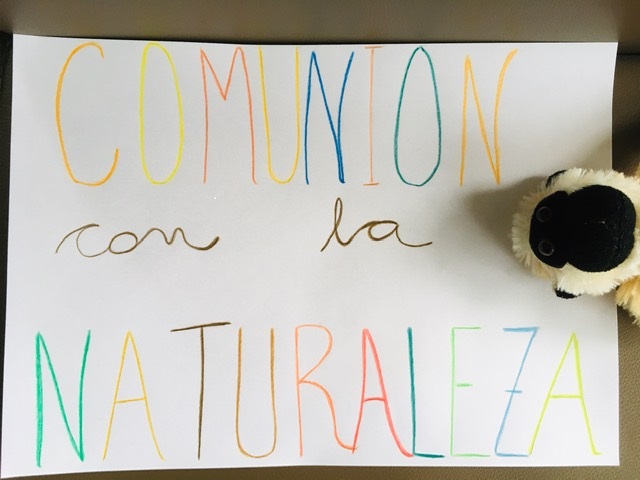 COMUNION
con la
NATURALEZA